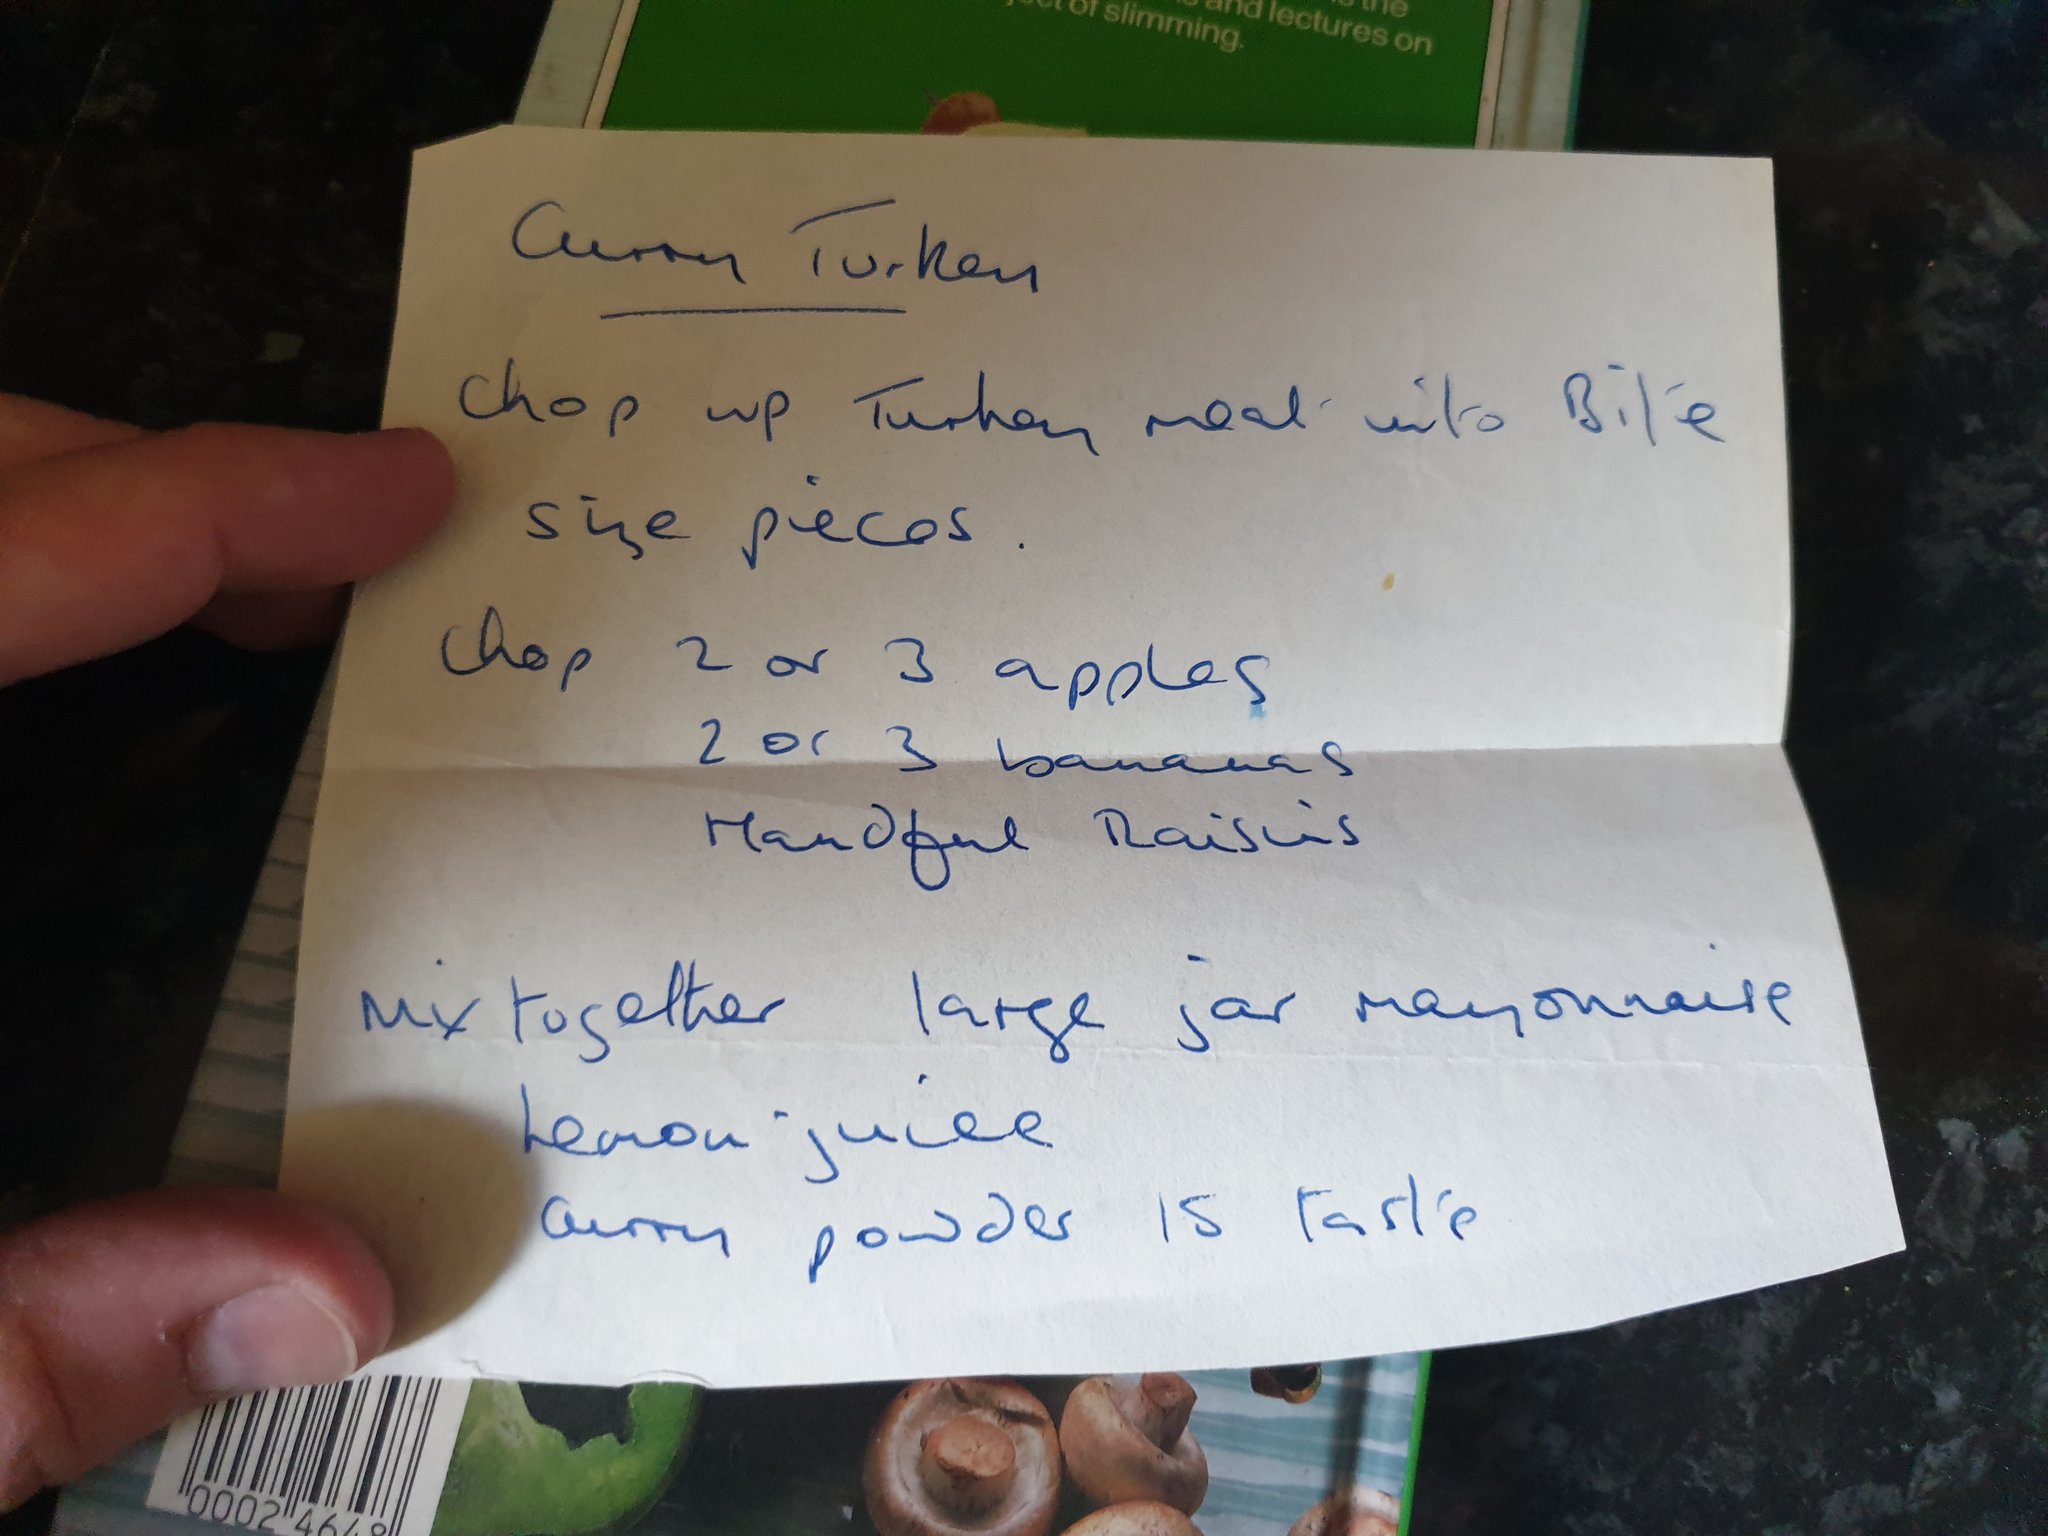 the
and lectures on
ject of slimming.
Curry Turkey
Chop up Turkey meat into Bite
size pieces.
Chop 2 or 3 apples
2 or 3 bananas
Handful Raisins
Mix together large jar mayonnaise
Lemon juice
Curry powder to taste
00024648